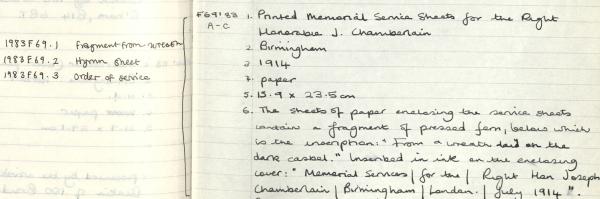 1983F69.1 Fragment from wreath
1983F69.2 Hymn sheet
1983F69.3 Order of service
F69'83
A-C
1. Printed Memorial Service Sheets for the Right
Honorable J. Chamberlain
2. Birmingham
3. 1914
7. paper
5. 15.9 x 23.5cm
6. The sheets of paper enclosing the service sheets
contain a fragment of pressed fern, below which
is the inscription: "From a wreath laid on the
dark casket." Inscribed in ink on the enclosing
cover: "Memorial Services | for the | Right Hon Joseph
Chamberlain | Birmingham | London. | July 1914".